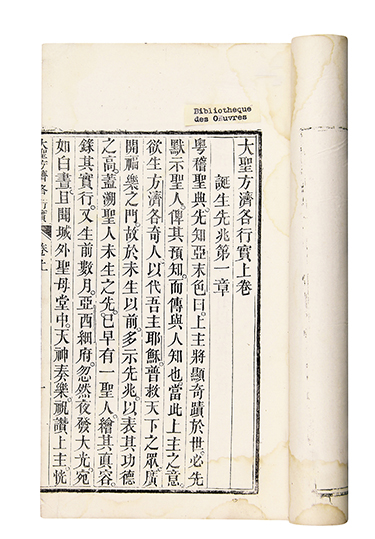 Bibliotheque
des Œuvres
大聖方濟各行實上卷
誕生先兆第一章
粵稽聖典先知亞末色曰。上主將顯奇蹟於世。必先
默示聖人。俾其預知。而傳與人知也。當此上主之意。
欲生方濟各奇人。以代吾主耶穌。普救天下之眾。廣
開福樂之門。故於未生以前。多示先兆。以表其功德
之高。蓋溯聖人未生之先。已早有一聖人。繪其真容。
錄其實行。又生前數月。亞西細府。忽然夜發大光。宛
如白晝。且聞城外聖母堂中。天神奏樂。祝讚上主。恍
大聖方濟各行實 卷上 一